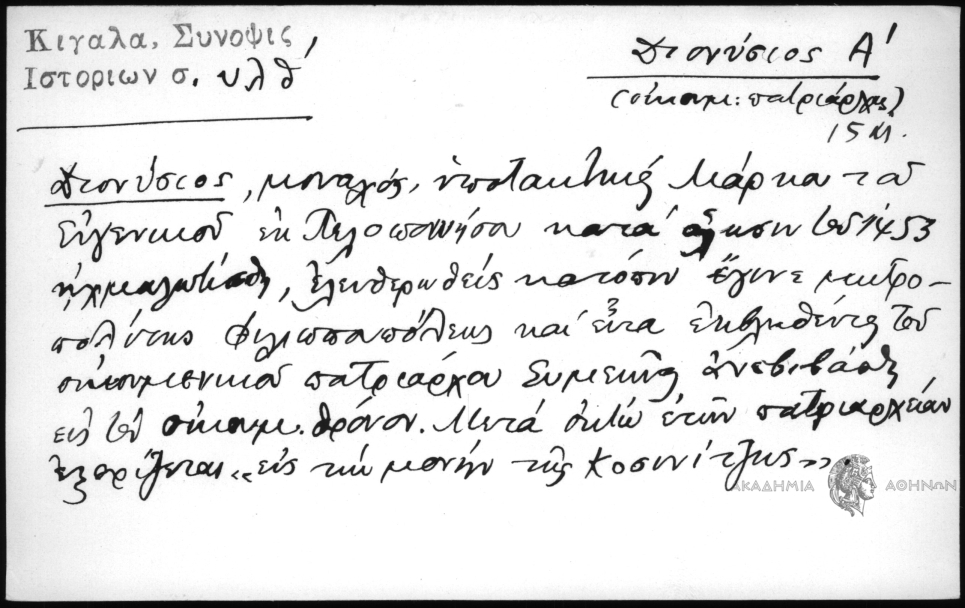 Κιγαλα, Συνοψις
Ιστοριων σ. υλθ'
Διονύσιος Α'
(οἰκουμ: πατριάρχης)
15 αι.
Διονύσιος, μοναχός, ὑποτακτικός Μάρκου τοῦ
Εὐγενικοῦ ἐκ Πελοποννήσου κατά ἅλωσιν τοῦ 1453
ἠχμαλωτίσθη, ἐλευθερωθείς κατόπιν ἔγινε μητρο-
πολίτης Φιλιππουπόλεως καί εἶτα ἐκβληθέντος τοῦ
οἰκουμενικοῦ πατριάρχου Συμεών ἀνεβιβάσθη
εἰς τόν οἰκουμ. θρόνον. Μετά ὀκτώ ἐτῶν πατριαρχείαν
ἐξορίζεται «εἰς τήν μονήν τῆς Κοσινίτζης»
ΑΚΑΔΗΜΙΑ ΑΘΗΝΩΝ